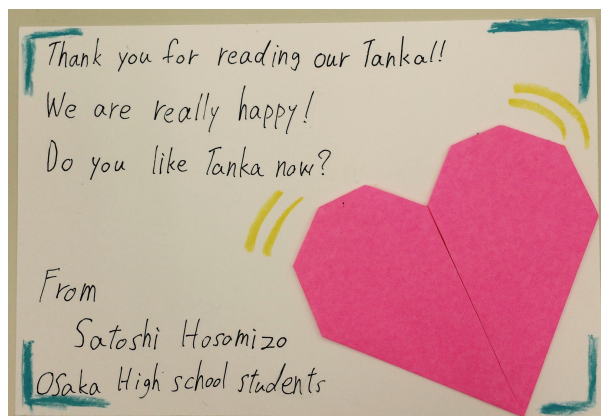 Thank you for reading our Tanka!!
We are really happy!
Do you like Tanka now?
From
Satoshi Hosomizo
Osaka High school students